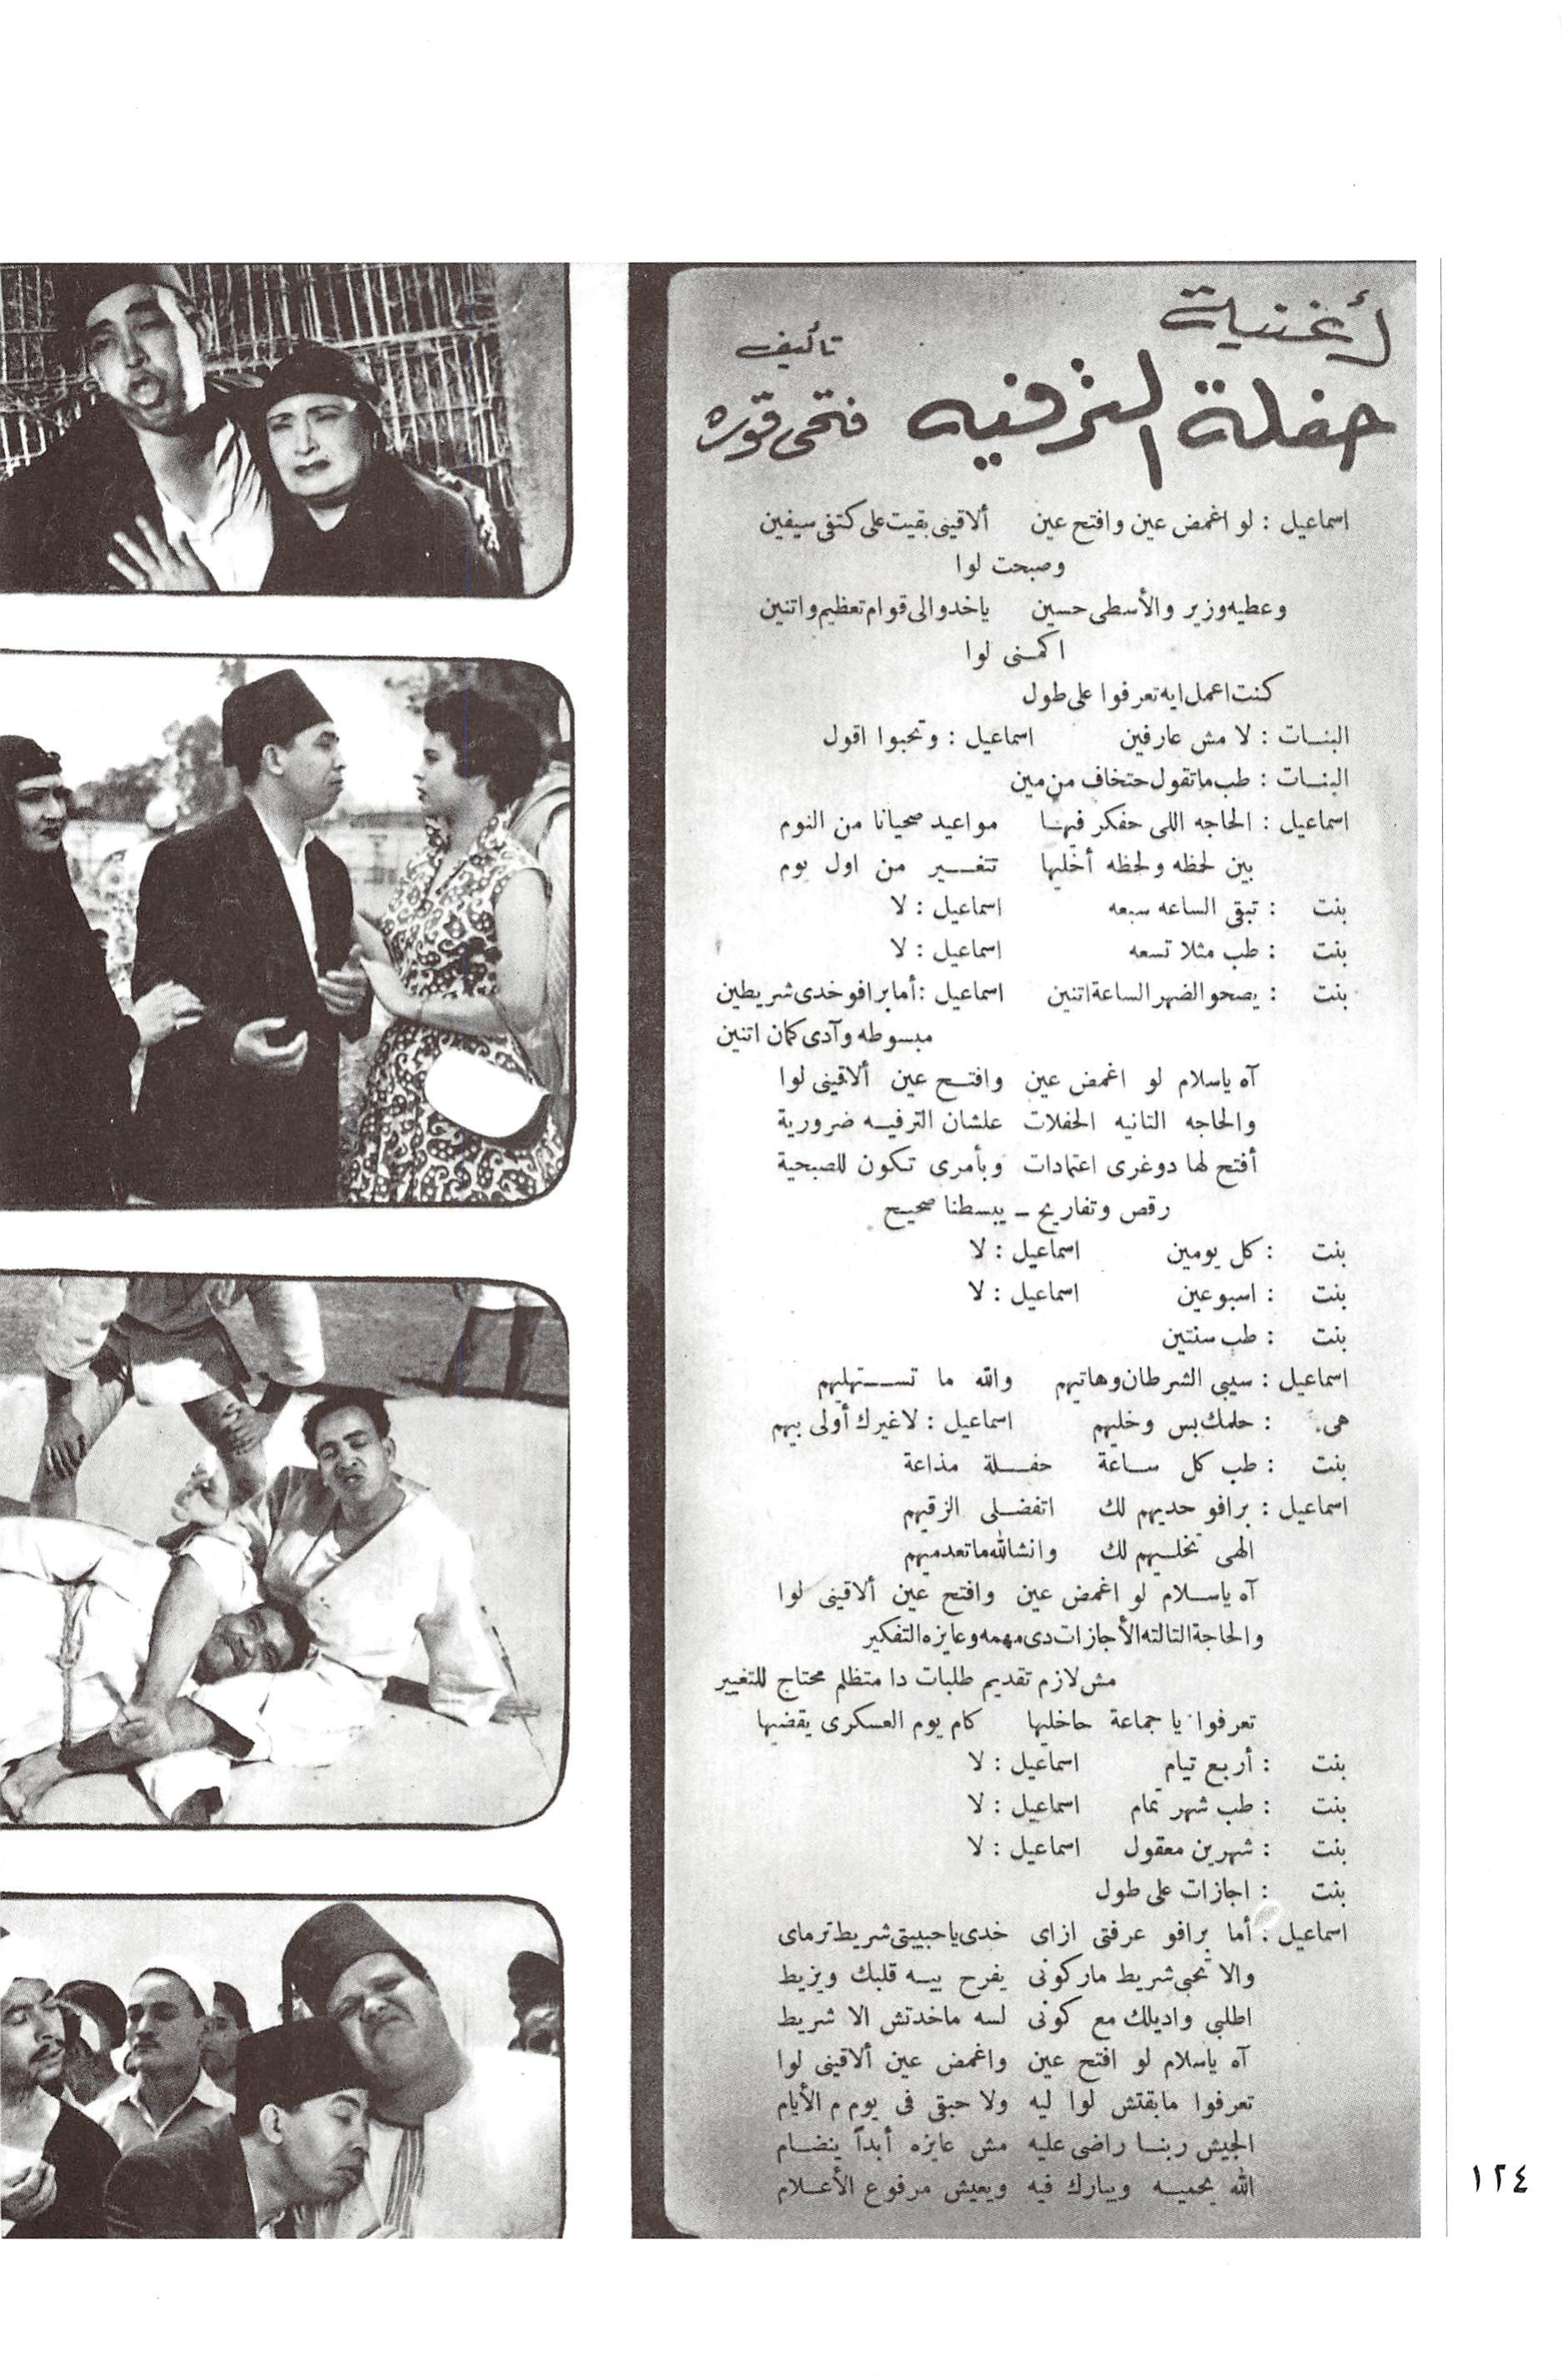 أغنية
حفلة الترفيه
تأليف
فتحى قوره
اسماعيل : لو اغمض عين وافتح عين ألاقينى بقيت على كتفى سيفين
وصبحت لوا
وعطيه وزير والأسطى حسين ياخدوا لى قوام تعظيم واتنين
اكمنى لوا
كنت اعمل ايه تعرفوا على طول
البنـات : لا مش عارفين اسماعيل : وتحبوا اقول
البنـات : طب ما تقول حتخاف من مين
اسماعيل : الحاجه اللى حفكر فيهـا مواعيد صحيانا من النوم
بين لحظه ولحظه أخليها تتغـــير من اول يوم
بنت : تبقى الساعه سبعه اسماعيل : لا
بنت : طب مثلا تسعه اسماعيل : لا
بنت : يصحو الضهر الساعة اتنين اسماعيل : أما برافو خدى شريطين
مبسوطه وآدى كمان اتنين
آه ياسلام لو اغمض عين وافتـــح عين ألاقينى لوا
والحاجه التانيه الحفلات علشان الترفيــه ضرورية
أفتح لها دوغرى اعتمادات وبأمرى تكون للصبحية
رقص وتفاريح ــ يبسطنا صحيح
بنت : كل يومين اسماعيل : لا
بنت : اسبوعين اسماعيل : لا
بنت : طب سنتين
اسماعيل : سيبى الشرطان وهاتيهم والله ما تســـتهليهم
هى : حلمك بس وخليهم اسماعيل : لا غيرك أولى بيهم
بنت : طب كل ســاعة حفــلة مذاعة
اسماعيل : برافو حديهم لك اتفضــلى الزقيهم
الهى تخلــيهم لك وانشالله ما تعدميهم
آه ياســلام لو اغمض عين وافتح عين ألاقينى لوا
والحاجة التالته الأجازات دى مهمه وعايزه التفكير
مش لازم تقديم طلبات دا متظلم محتاج للتغيير
تعرفوا يا جماعة حاخليها كام يوم العسكرى يقضيها
بنت : أربع تيام اسماعيل : لا
بنت : طب شهر تمام اسماعيل : لا
بنت : شهرين معقول اسماعيل : لا
بنت : اجازات على طول
اسماعيل : أما برافو عرفتى ازاى خدى يا حبيبتى شريط ترماى
والا تحبى شريط ماركونى يفرح بيــه قلبك ويزيط
اطلبى واديلك مع كونى لسه ماخدتش الا شريط
آه ياسلام لو افتح عين واغمض عين ألاقينى لوا
تعرفوا مابقتش لوا ليه ولا حبقى فى يوم م الأيام
الجيش ربنـا راضى عليه مش عايزه أبداً ينضـام
الله يحميــه ويبارك فيه ويعيش مرفوع الأعــلام
١٢٤